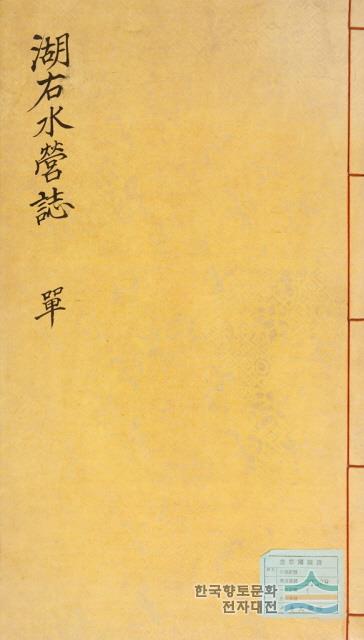 湖右水營誌 單
한국향토문화
전자대전